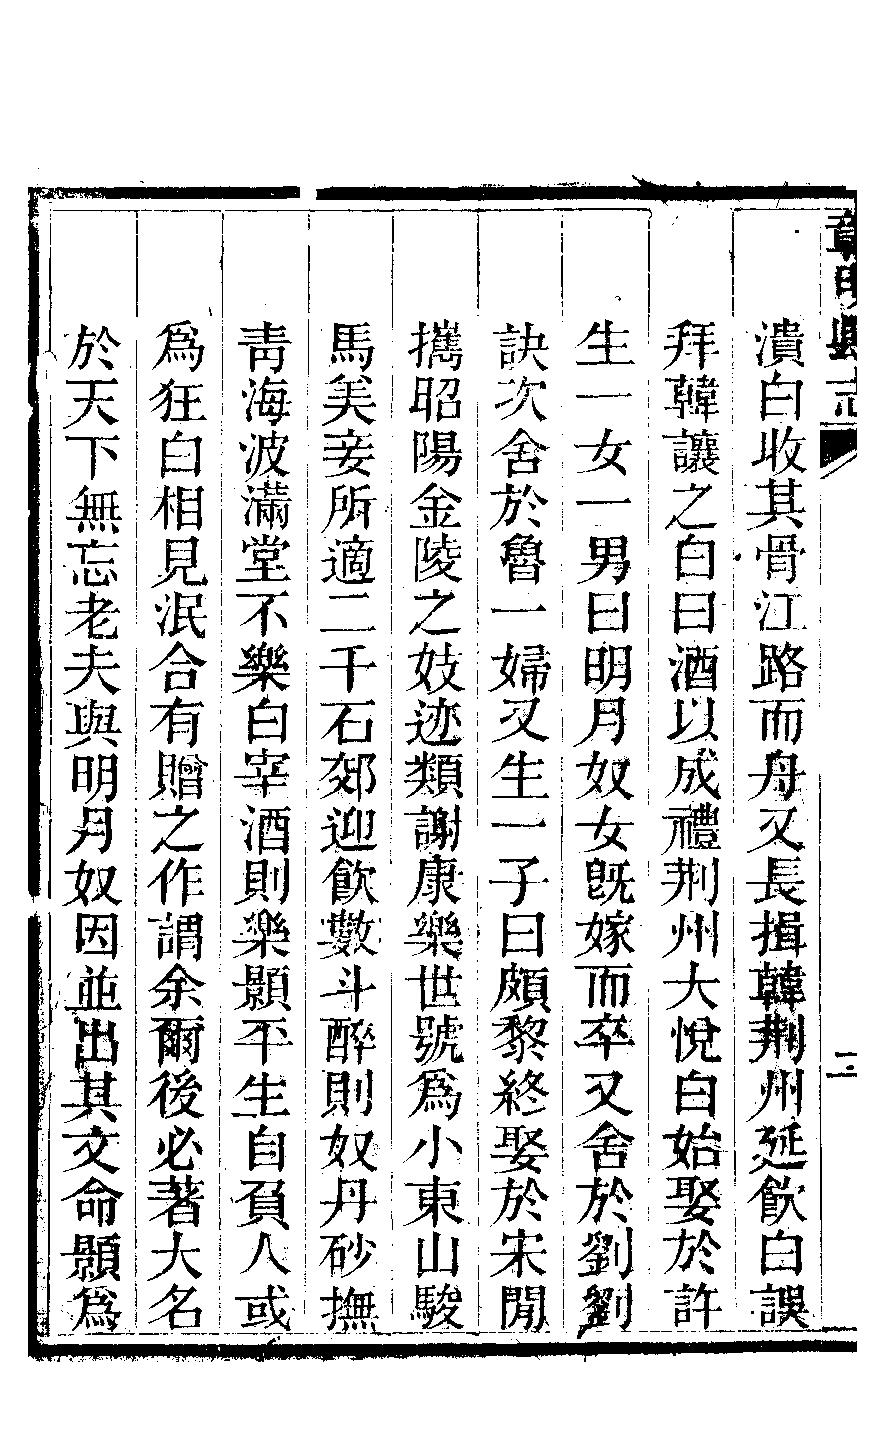 彰明縣志
二
潰白收其骨江路而舟又長揖韓荆州延飲白誤
拜韓讓之白曰酒以成禮荆州大悅白始娶於許
生一女一男曰明月奴女旣嫁而卒又舍於劉劉
訣次舍於魯一婦又生一子曰頗黎終娶於宋閒
攜昭陽金陵之妓迹類謝康樂世號爲小東山駿
馬美妾所適二千石郊迎飲數斗醉則奴丹砂撫
靑海波滿堂不樂白宰酒則樂顥平生自負人或
爲狂白相見泯合有贈之作謂余爾後必著大名
於天下無忘老夫與明月奴因並出其文命顥爲